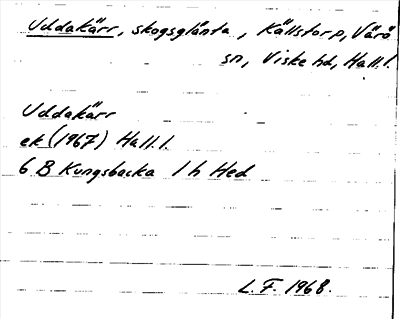 Uddakärr, skogsglänta, Källstorp, Värö
sn, Viske hd, Hall. l.
Uddakärr
ek (1967) Hall. l.
6 B Kungsbacka 1 h Hed
L. F. 1968.